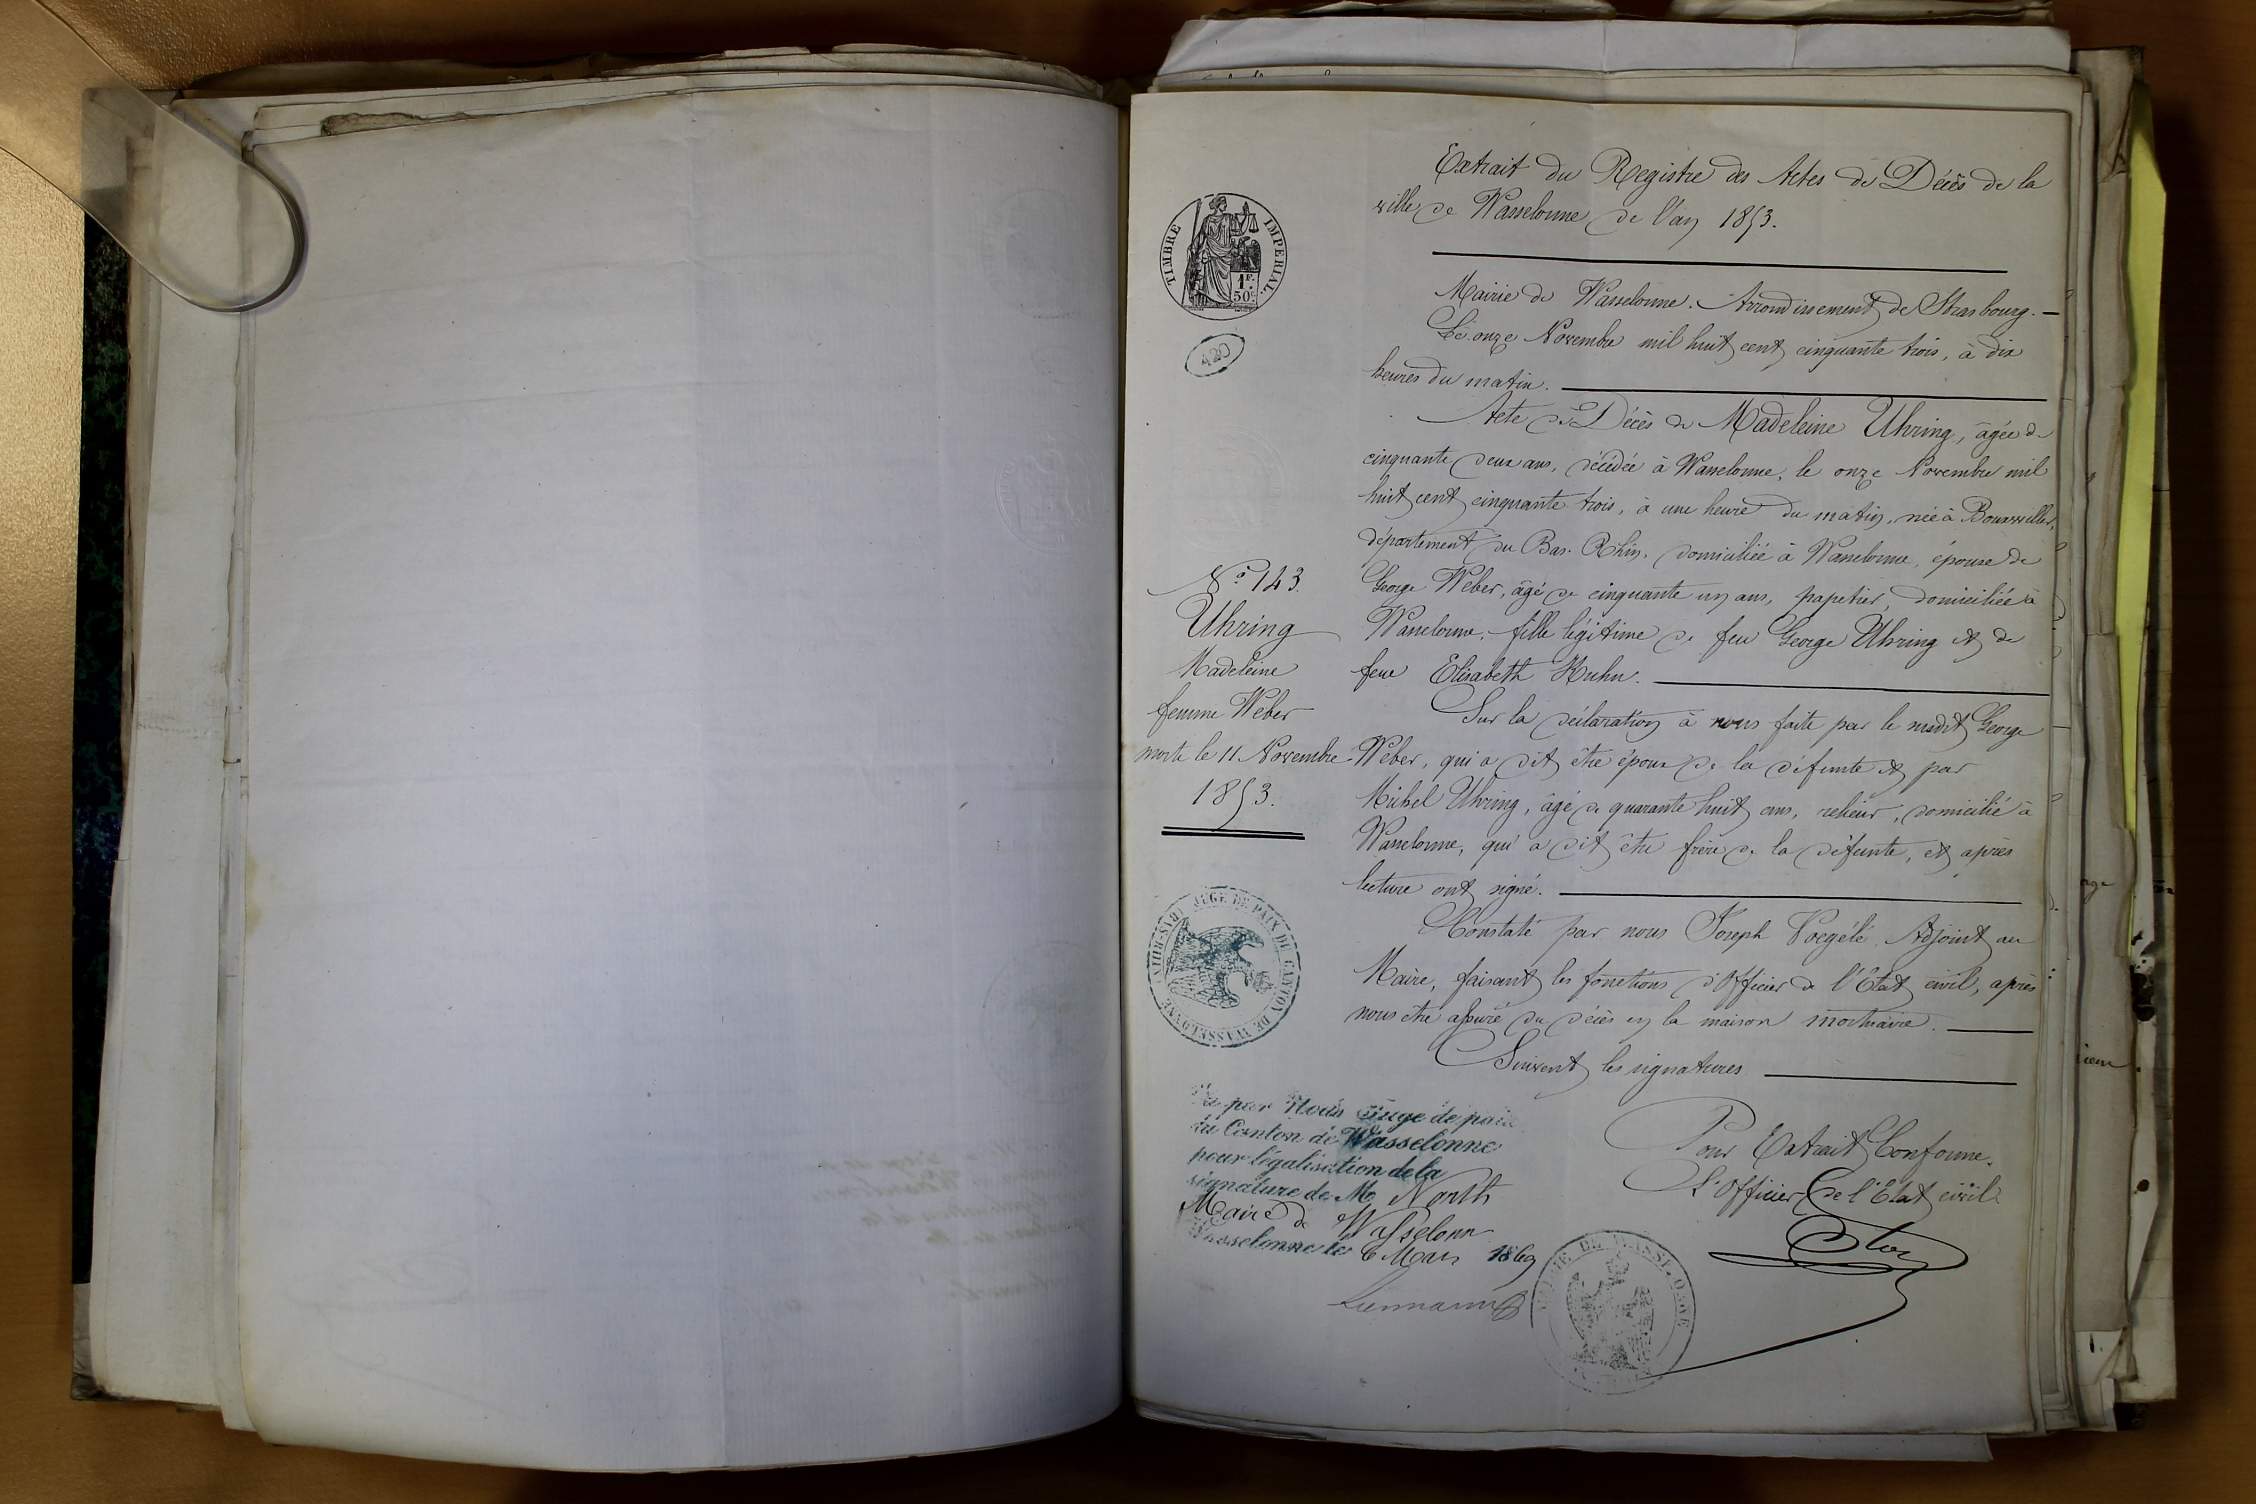 Extrait du Registre des Actes de Décès de la
ville de Wasselonne de l'an 1853.
TIMBRE IMPERIAL.
1F.
50C.
420
Mairie de Wasselonne. Arrondissement de Strasbourg.
Le onze Novembre mil huit cent cinquante trois, à dix
heures du matin.
Acte de Décès de Madeleine Uhring, âgée de
cinquante deux ans, décédée à Wasselonne, le onze Novembre mil
huit cent cinquante trois, à une heure du matin, née à Bouxwiller,
département du Bas-Rhin, domiciliée à Wasselonne, épouse de
George Weber, âgé de cinquante un ans, papetier, domiciliée à
Wasselonne, fille légitime de feu George Uhring et de
feue Elisabeth Kuhn.
Sur la déclaration à nous faite par le susdit George
Weber, qui a dit être époux de la défunte et par
Michel Uhring, âgé de quarante huit ans, relieur, domicilié à
Wasselonne, qui a dit être frère de la défunte, et après
lecture ont signé.
Constaté par nous Joseph Voegélé Adjoint au
Maire, faisant les fonctions d'Officier de l'Etat civil, après
nous être assuré du décès en la maison mortuaire.
Suivent les signatures
Pour Extrait Conforme.
L'Officier de l'Etat civil
N° 143.
Uhring
Madeleine
femme Weber
morte le 11 Novembre
1853.
JUGE DE PAIX DU CANTON DE WASSELONNE (BAS-RHIN)
Vu par Nous Juge de paix
du Canton de Wasselonne
pour légalisation de la
signature de M North
Maire de Wasselonne
Wasselonne le 6 Mars 1869
MAIRIE DE WASSELONNE